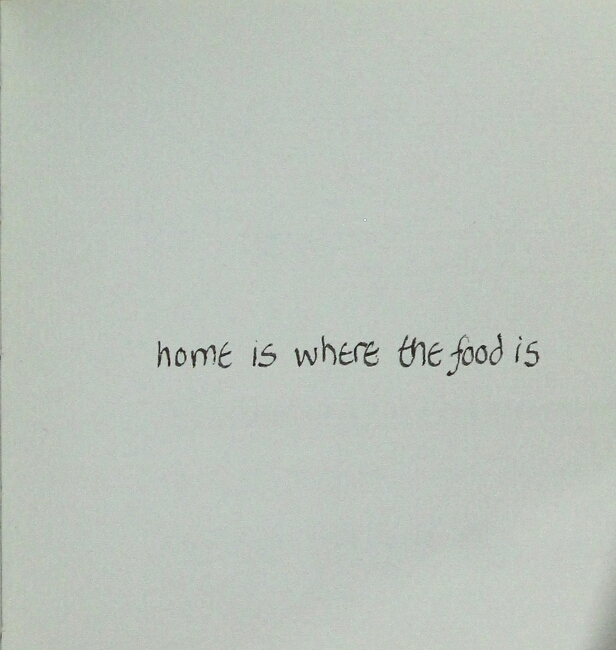 home is where the food is